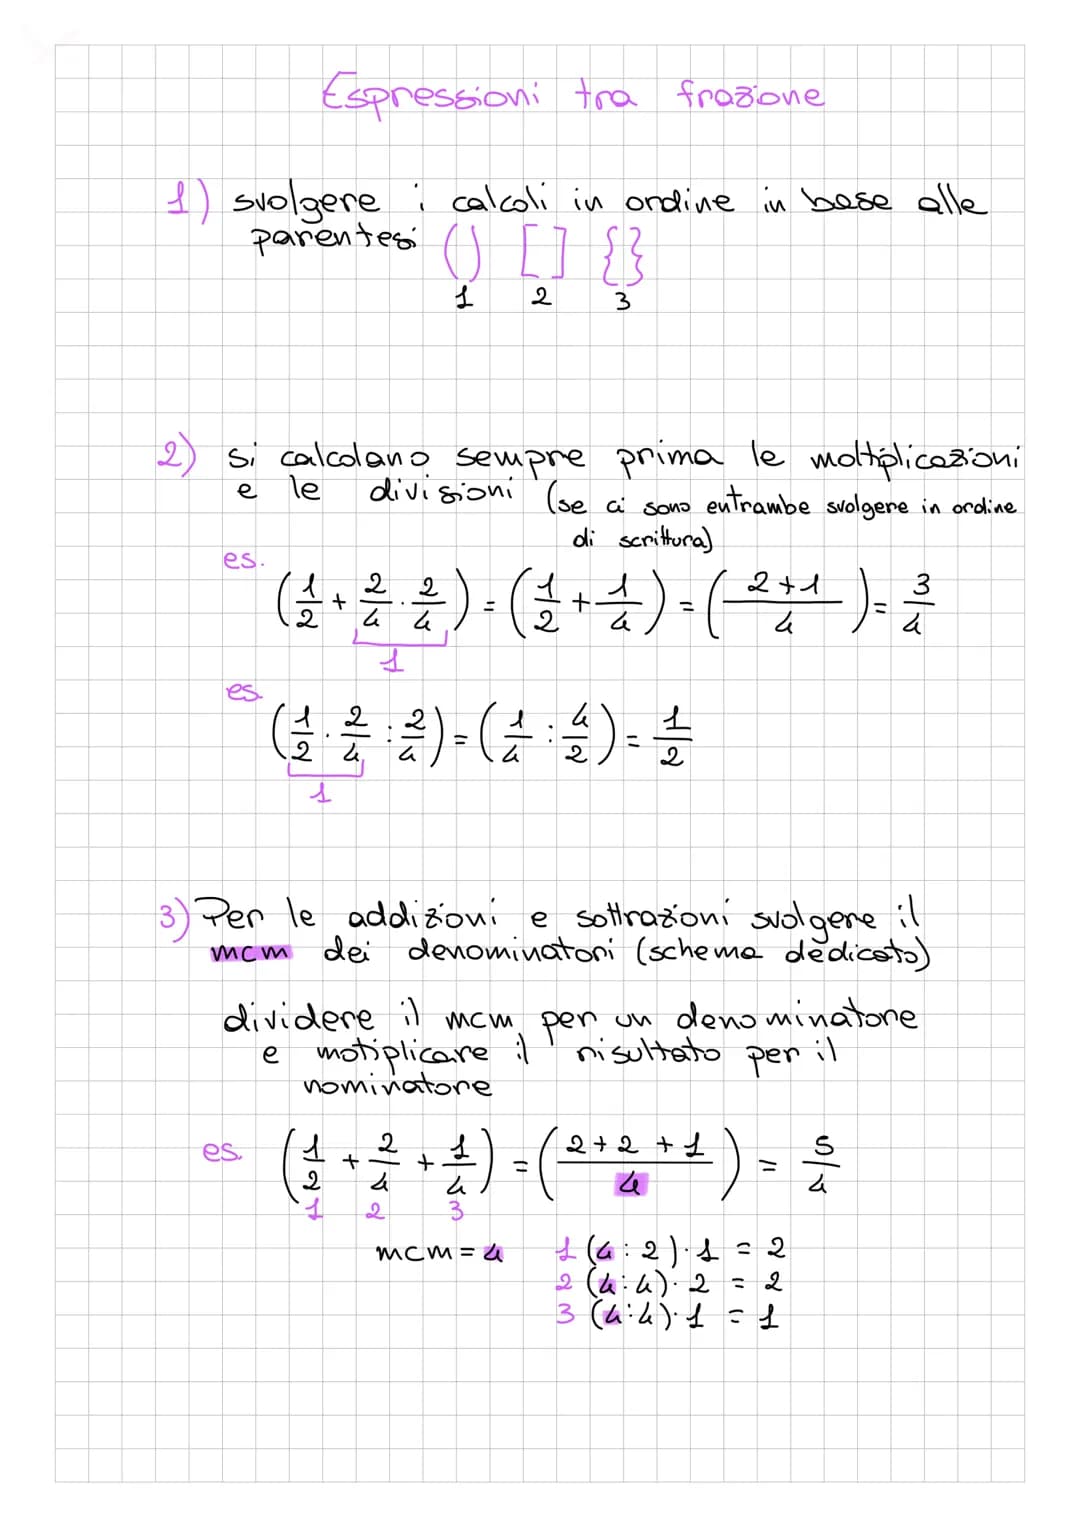 Espressioni tra frazione
1) svolgere i calcoli in ordine in base alle
parentesi () [] {}
1 2 3
2) si calcolano sempre prima le moltiplicazioni
e le divisioni (se ci sono entrambe svolgere in ordine
di scrittura)
es.
(1/2 + 2/4 · 2/4) = (1/2 + 1/4) = (2+1/4) = 3/4
1
es.
(1/2 · 2/4 : 2/4) = (1/4 : 4/2) = 1/2
1
3) Per le addizioni e sottrazioni svolgere il
mcm dei denominatori (schema dedicato)
dividere il mcm per un denominatore
e motiplicare il risultato per il
nominatore
es. (1/2 + 2/4 + 1/4) = (2+2+1/4) = 5/4
1 2 3
mcm = 4 1 (4:2)·1 = 2
2 (4:4)·2 = 2
3 (4:4)·1 = 1